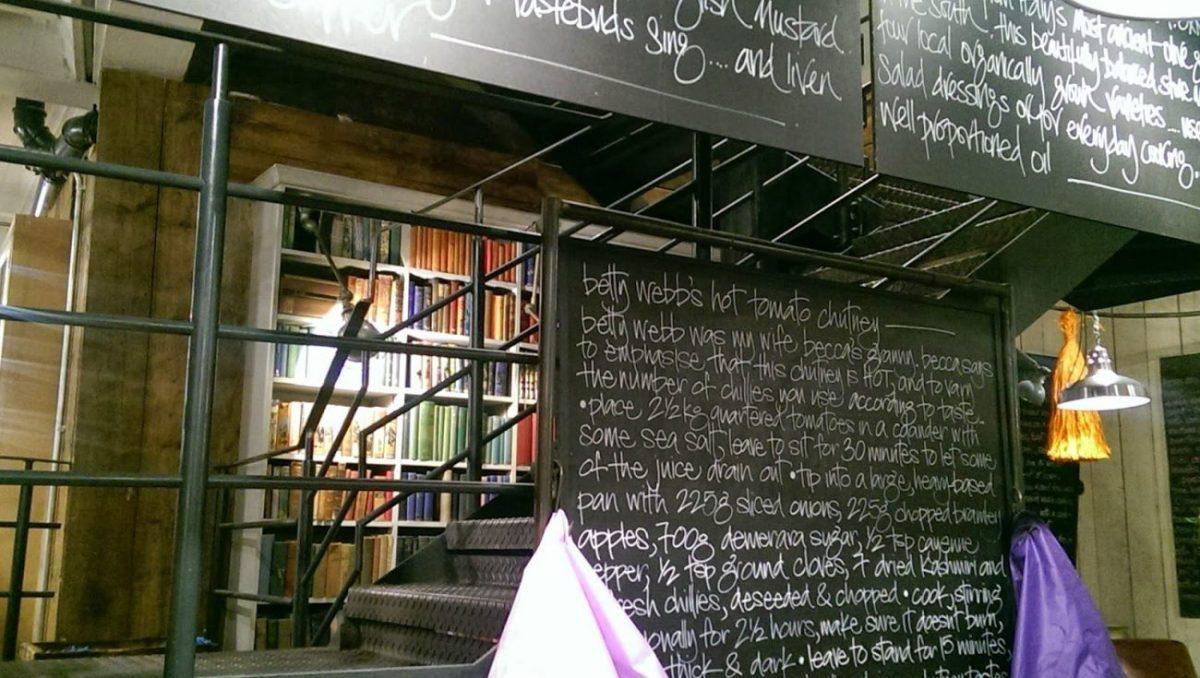 English Mustard
Tastebuds sing.... and liven
Italy's most ancient olive
this beautifully balanced
four local organically grown varieties....
salad dressings or for everyday cooking..
well proportioned oil
betty webb's hot tomato chutney
betty webb was my wife, becca's granny. becca says
to emphasise, that this chutney is HOT, and to vary
the number of chillies you use according to taste
•place 2½kg quartered tomatoes in a coander with
some sea salt, leave to sit for 30 minutes to let some
of the juice drain out •tip into a large, heavy-based
pan with 225g sliced onions, 225g chopped bramley
apples, 700g demerara sugar, ½ tsp cayenne
pepper, ½ tsp ground cloves, 7 dried Kashmiri and
fresh chillies, deseeded & chopped •cook, stirring
for 2½ hours, make sure it doesn't burn,
thick & dark •leave to stand for 15 minutes,